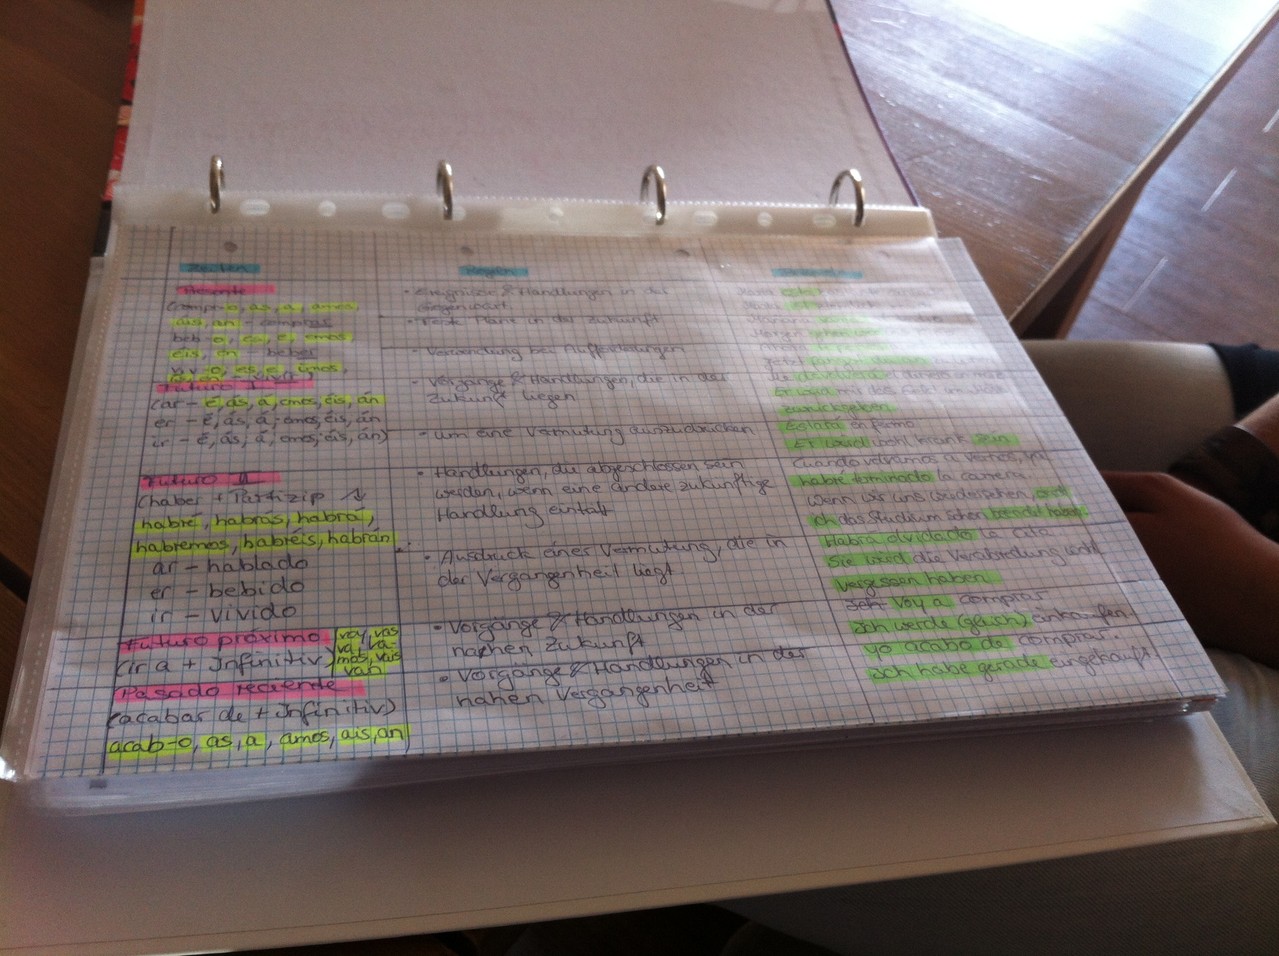 Zeiten
Regeln
Presente
(compr-o, as, a, amos,
áis, an - comprar
beb-o, es, e, emos
éis, en - beber
viv-o, es, e, imos
Futuro I
(ar - é, ás, á, emos, éis, án
er - é, ás, á, emos, éis, án
ir - é, ás, á, emos, éis, án)
Futuro II
(haber + Partizip
habré, habrás, habrá,
habremos, habréis, habrán
ar - hablado
er - bebido
ir - vivido
Futuro próximo
(ir a + Infinitiv)
voy, vas
va, va
mos, vais
van
Pasado reciente
(acabar de + Infinitiv)
acab-o, as, a, amos, ais, an
• Ereignisse & Handlungen in der
Gegenwart
• Feste Pläne in der Zukunft
• Verwendung bei Aufforderungen
• Vorgänge & Handlungen, die in der
Zukunft liegen
• um eine Vermutung auszudrücken
• Handlungen, die abgeschlossen sein
werden, wenn eine andere zukünftige
Handlung eintritt
• Ausdruck einer Vermutung, die in
der Vergangenheit liegt
• Vorgänge & Handlungen in der
nahen Zukunft
• Vorgänge & Handlungen in der
nahen Vergangenheit
zurückgeben
Estará enfermo
Er wird wohl krank sein
Cuando volvamos a vernos, ya
habré terminado la carrera
Wenn wir uns wiedersehen, werde
ich das Studium schon beendet haben
Habrá olvidado la cita
Sie wird die Verabredung wohl
vergessen haben
Voy a comprar
Ich werde (gleich) einkaufen
yo acabo de comprar.
Ich habe gerade eingekauft